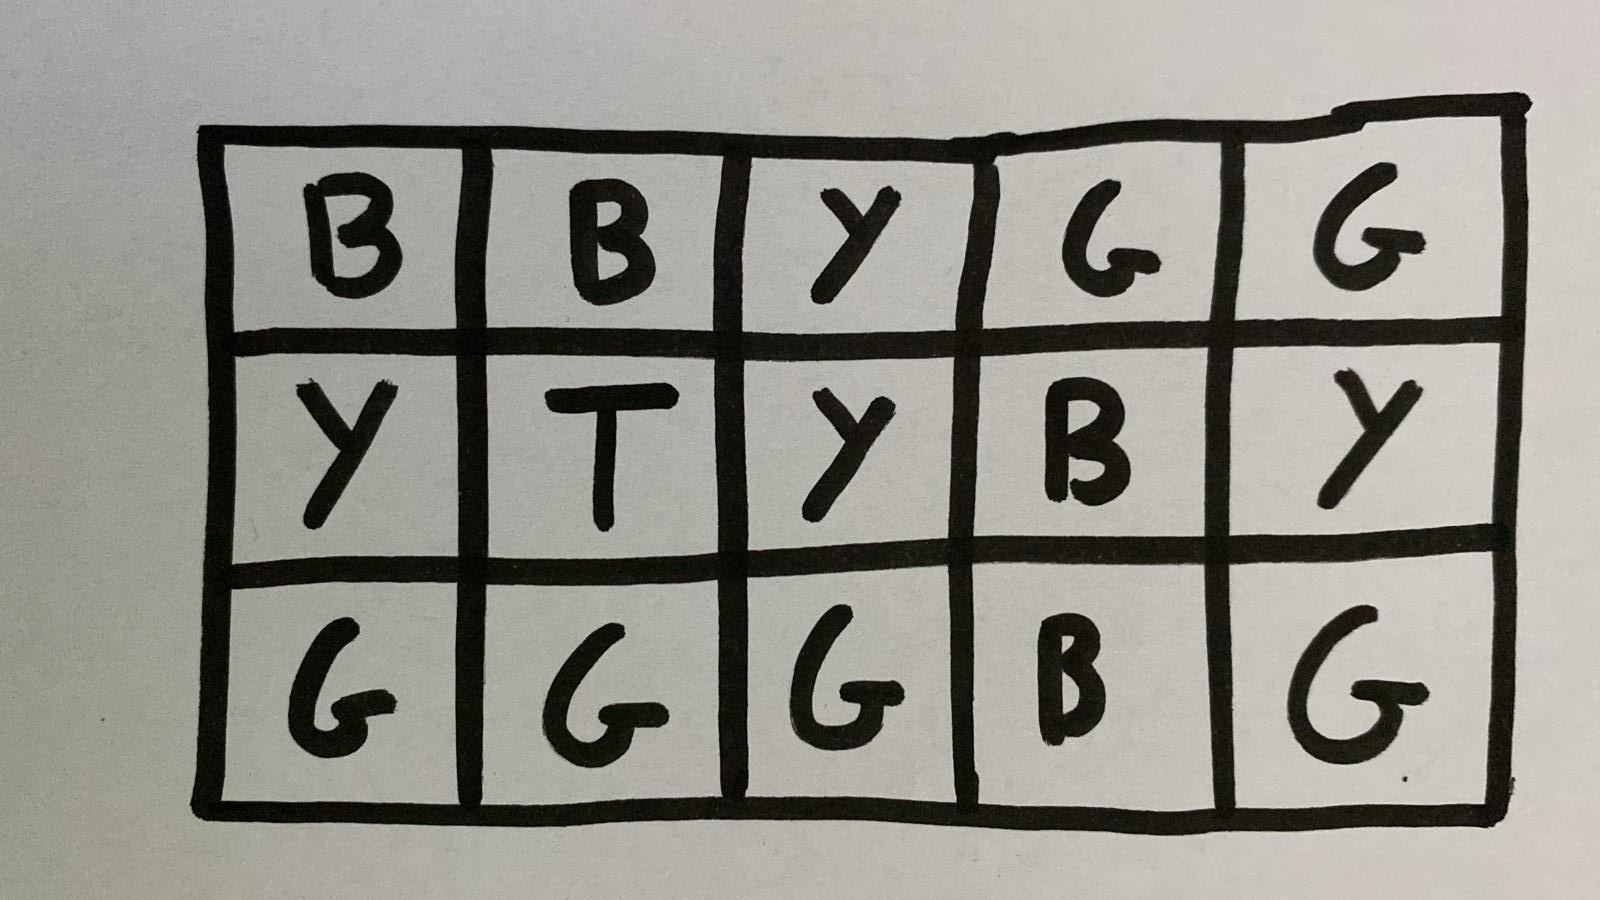 B B Y G G
Y T Y B Y
G G G B G